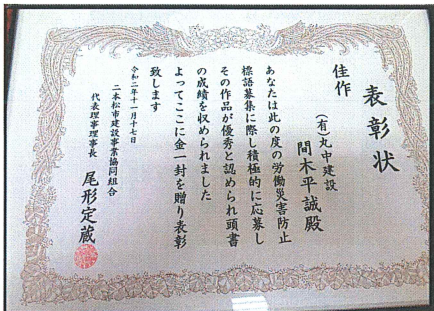 表彰状
佳作
(有)丸中建設
間木平誠殿
あなたは此の度の労働災害防止
標語募集に際し積極的に応募し
その作品が優秀と認められ頭書
の成績を収められました
よってここに金一封を贈り表彰
致します
令和二年十一月十七日
二本松市建設事業協同組合
代表理事理事長 尾形定蔵